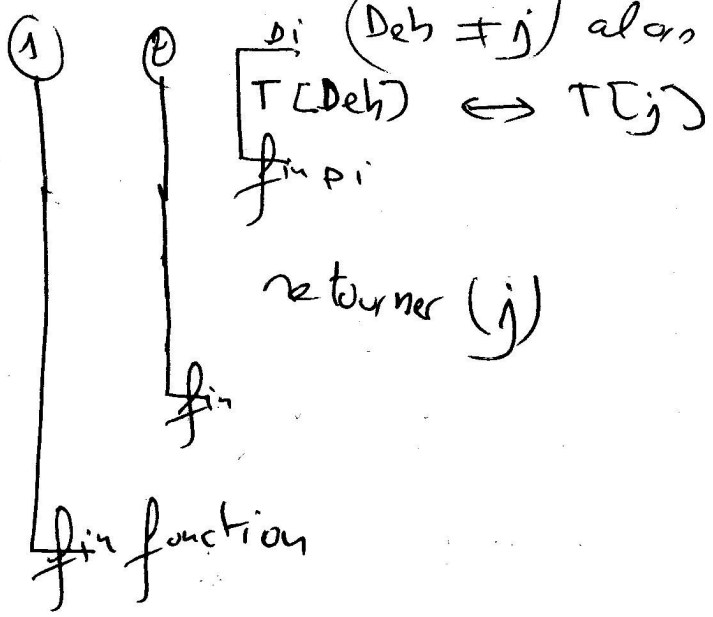 ① ② si (Deb ≠ j) alors
T[Deb] ⟷ T[j]
fin si
retourner (j)
fin
fin fonction